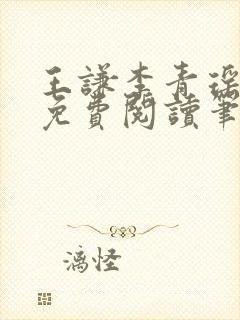 王謙李青瑶
免費閱讀筆
漓怪